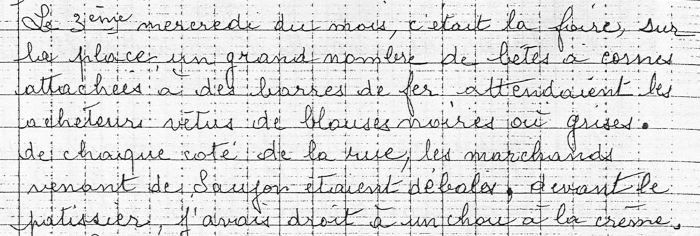 Le 3ème mercredi du mois, c'était la foire, sur
la place un grand nombre de bêtes à cornes
attachées à des barres de fer attendaient les
acheteurs vêtus de blouses noires où grises.
de chaque coté de la rue, les marchands
venant de Saujon étaient débales, devant le
patissier, j'avais droit à un chou à la crème.